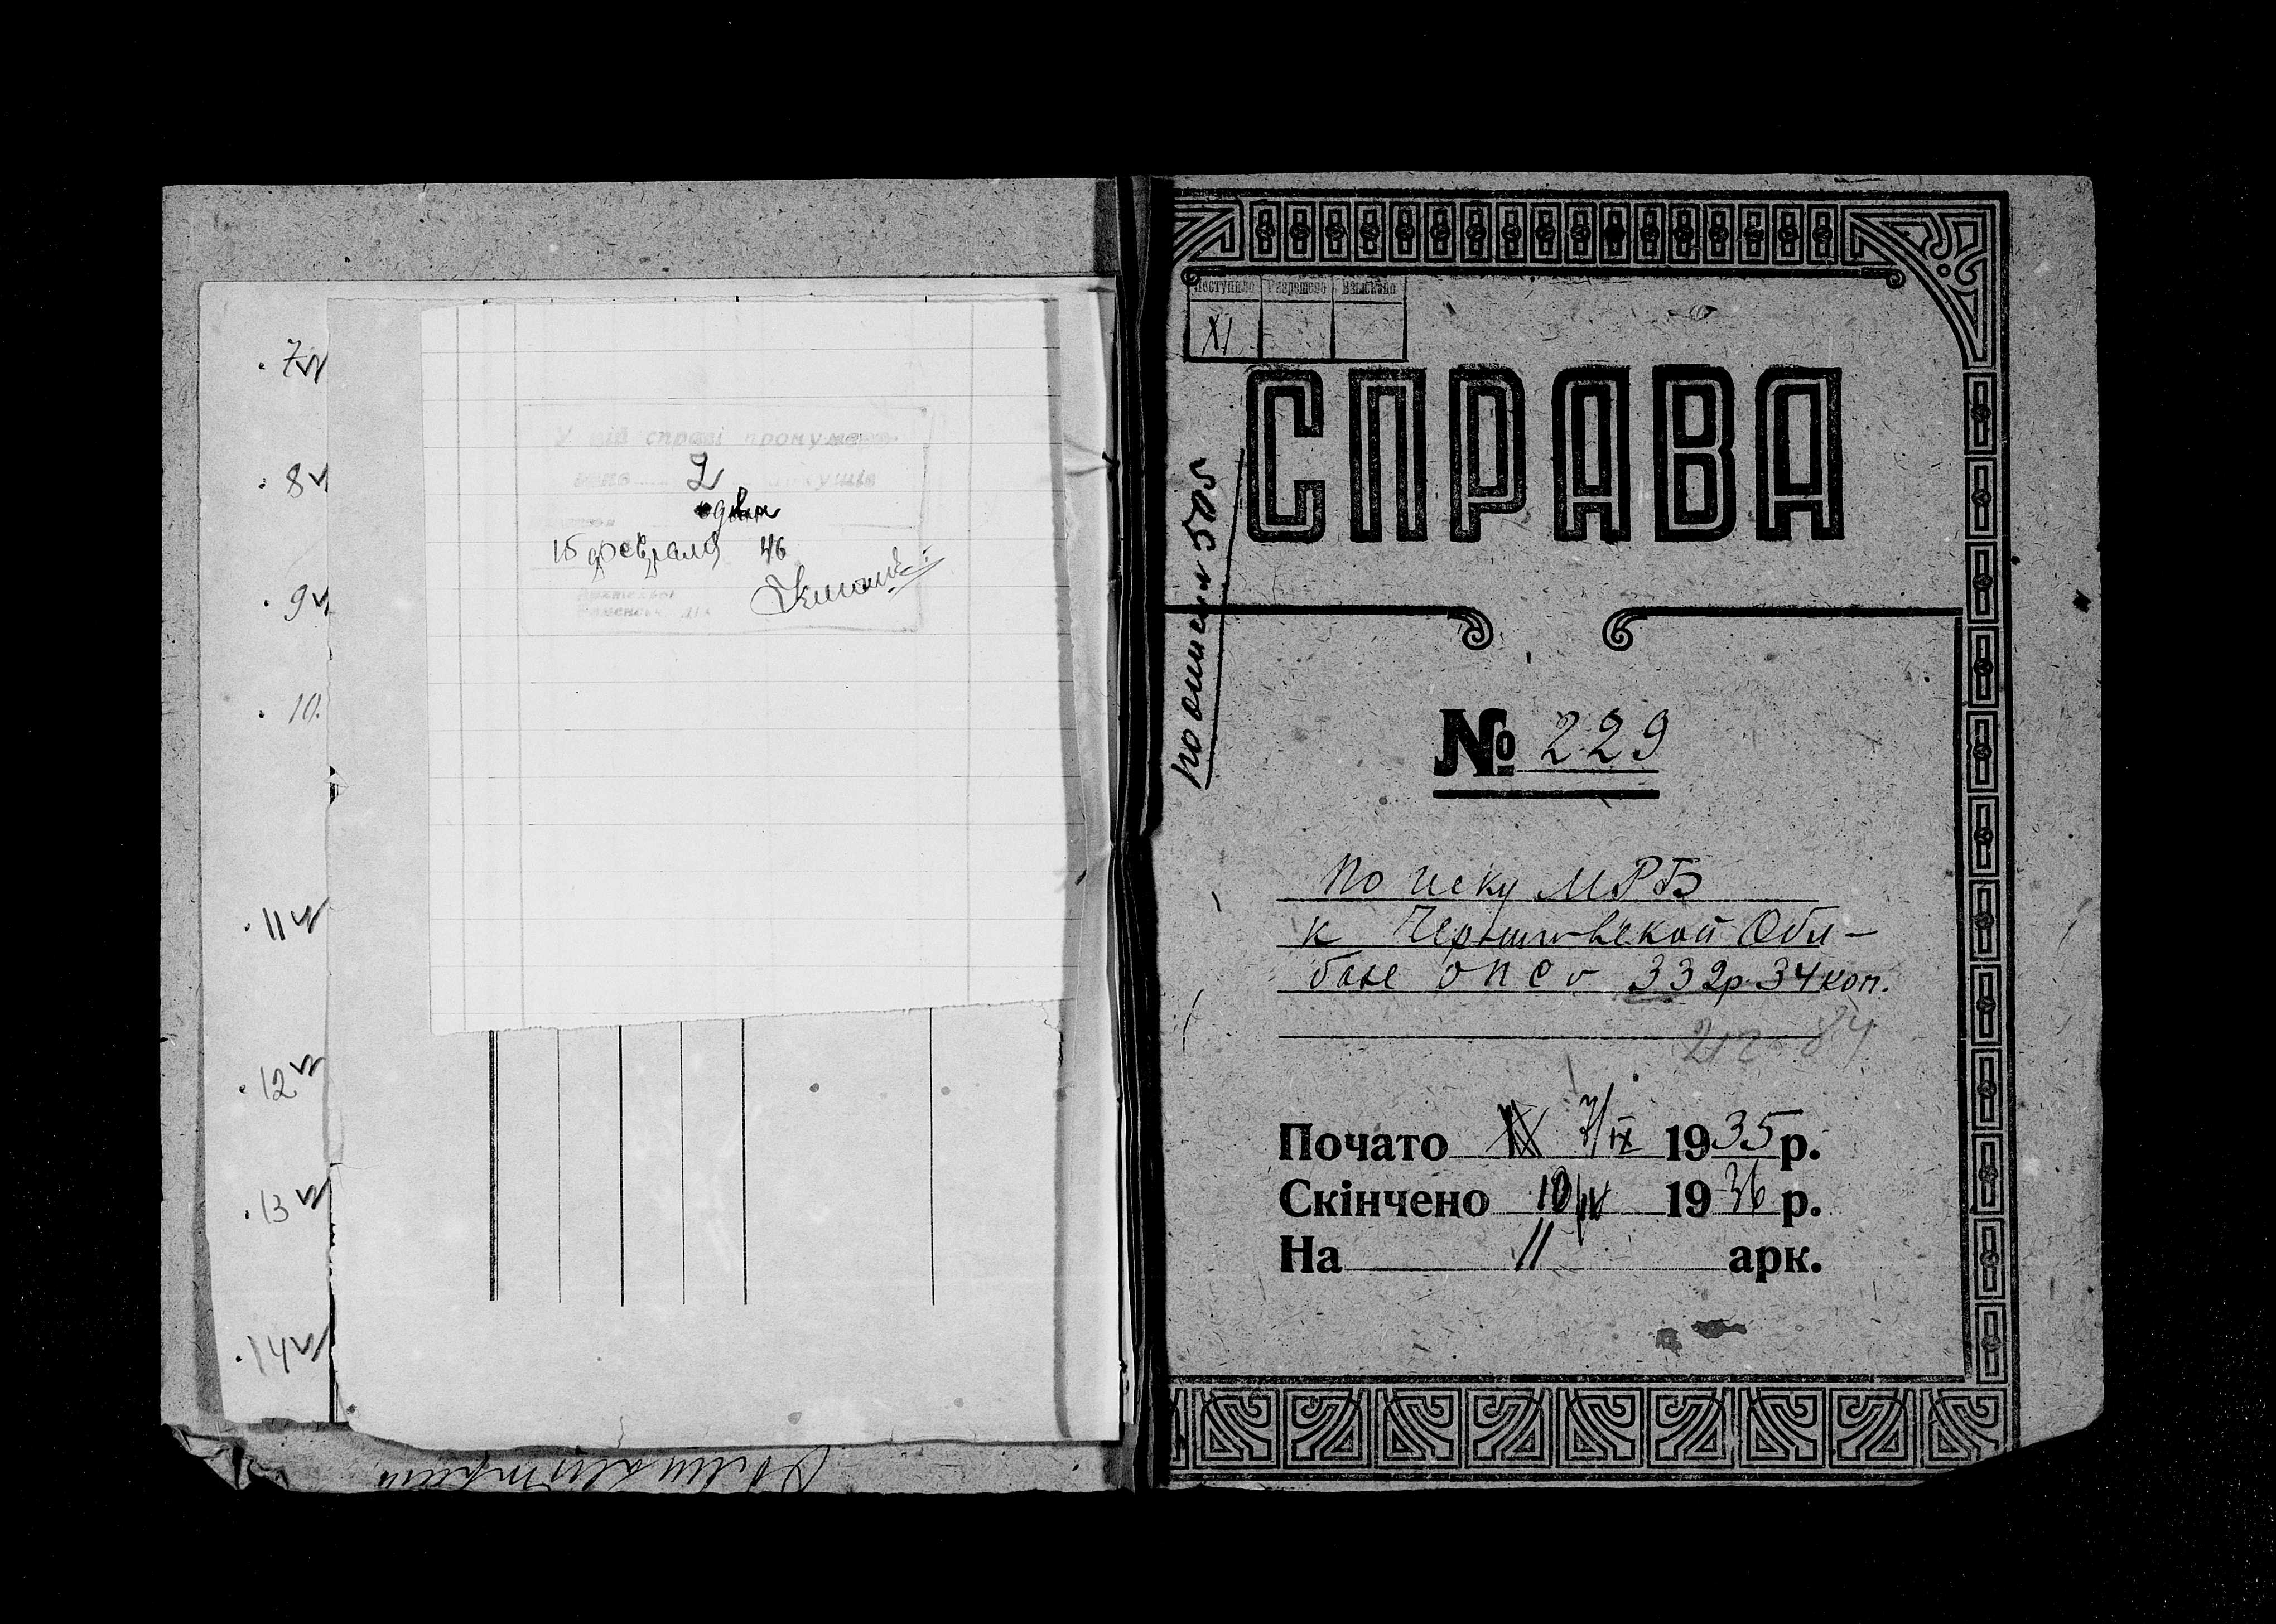 . 7
. 8
. 9
. 10.
. 11
. 12
. 13
. 14
У цій справі пронумеро-
вано 2 аркушів
один
15 февраля 46
Поступило Разрешено Взыскано
XI
СПРАВА
по описи 505
№ 229
По иску МРБ
к Черниговской Обл-
базе о п с о 332р 34 коп.
212-84
Почато 7/IX 1935 р.
Скінчено 10/IV 1936 р.
На 11 арк.